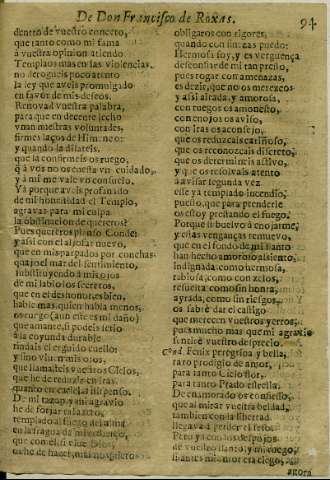 De Don Francisco de Roxas.
94
dentro de vuestro conceto,
que tanto como mi fama
à vuestra opinion atiendo
Templaos mas en las violencias,
no derogueis poco atento
la ley que aveis promulgado
en favor de mis deseos.
Renovad vuestra palabra,
para que en decente lecho
vnan nuestras voluntades,
firmes laços de Himeneo:
y quando la dilateis,
que la confirmeis os ruego,
q̃ à vos no os cuesta vn cuidado,
y à mi me vale vn consuelo.
Yà porque aveis profanado
de mi honestidad el Templo,
agravas para mi culpa
la obstinacion de quereros?
Pues quereros pienso Conde;
y assi con el aljofar nuevo,
que en mis parpados por conchas
quaja el mar del sentimiento,
substituyendo à mis ojos
de mi labio los secretos,
que en el deshonor es bien,
hable mas quien habla menos,
os
amante, si podeis serlo
à la coyunda durable
rindais el erguido cuello:
y sino viven mis ojos,
que llamasteis vuestros Cielos,
que he de reduzir en iras
quanto en cariños
De mi razon, y mi agravio
he de forjar
templado al fuego del alma
en la fragua de mi
que con el
obligaros con rigores,
quando con finezas puedo:
Hermosa soy, y es verguença
desconfiar de mi tan presto,
pues rogar con amenazas,
es dezir, que no os merezco:
y assi airada, y amorosa,
con ruegos os amonesto,
con enojos os aviso,
con iras os aconsejo,
que os reduzcais cariñoso,
que os reconozcais discreto,
que os determineis activo,
y que os resolvais atento
à avisar segunda vez
esse yà templado incendio,
puesto, que para prenderle
os estoy prestando el fuego.
Porque si buelvo à enojarme,
y essas venganças renuevo,
que en el fondo de mi llanto
han hecho amoroso assiento,
indignada como hermosa,
rabiosa como con zelos,
resuelta como sin honra,
ayrada, como sin riesgos,
os sabrè dar el castigo
que merecen vuestros yerros,
pues mucho mas que mi agravio
sentirè vuestro desprecio.
Cond. Fenix peregrina, y bella,
raro prodigio de amor,
para tanto Cielo flor,
para tanto Prado estrella.
De enamorado os confiesso,
que al mirar vuestra beldad,
tambien con la libertad
lleguè à perder el seso.
Pero ya con los despojos
de vuestro llanto, y mi ruego,
si antes mi amor era ciego,
agora